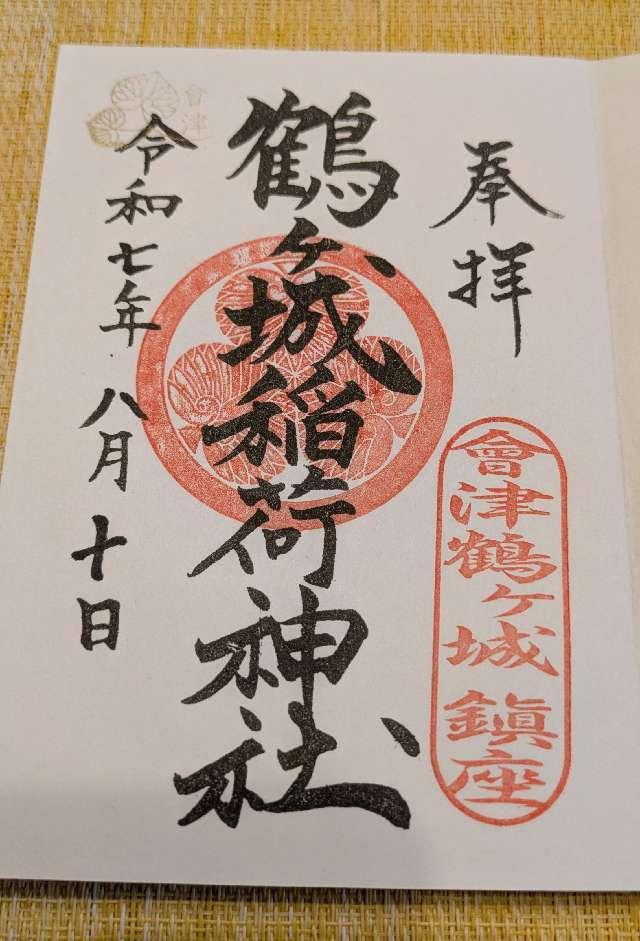 奉拝
會津鶴ヶ城鎮座
鶴ヶ城稲荷神社
令和七年八月十日
會津